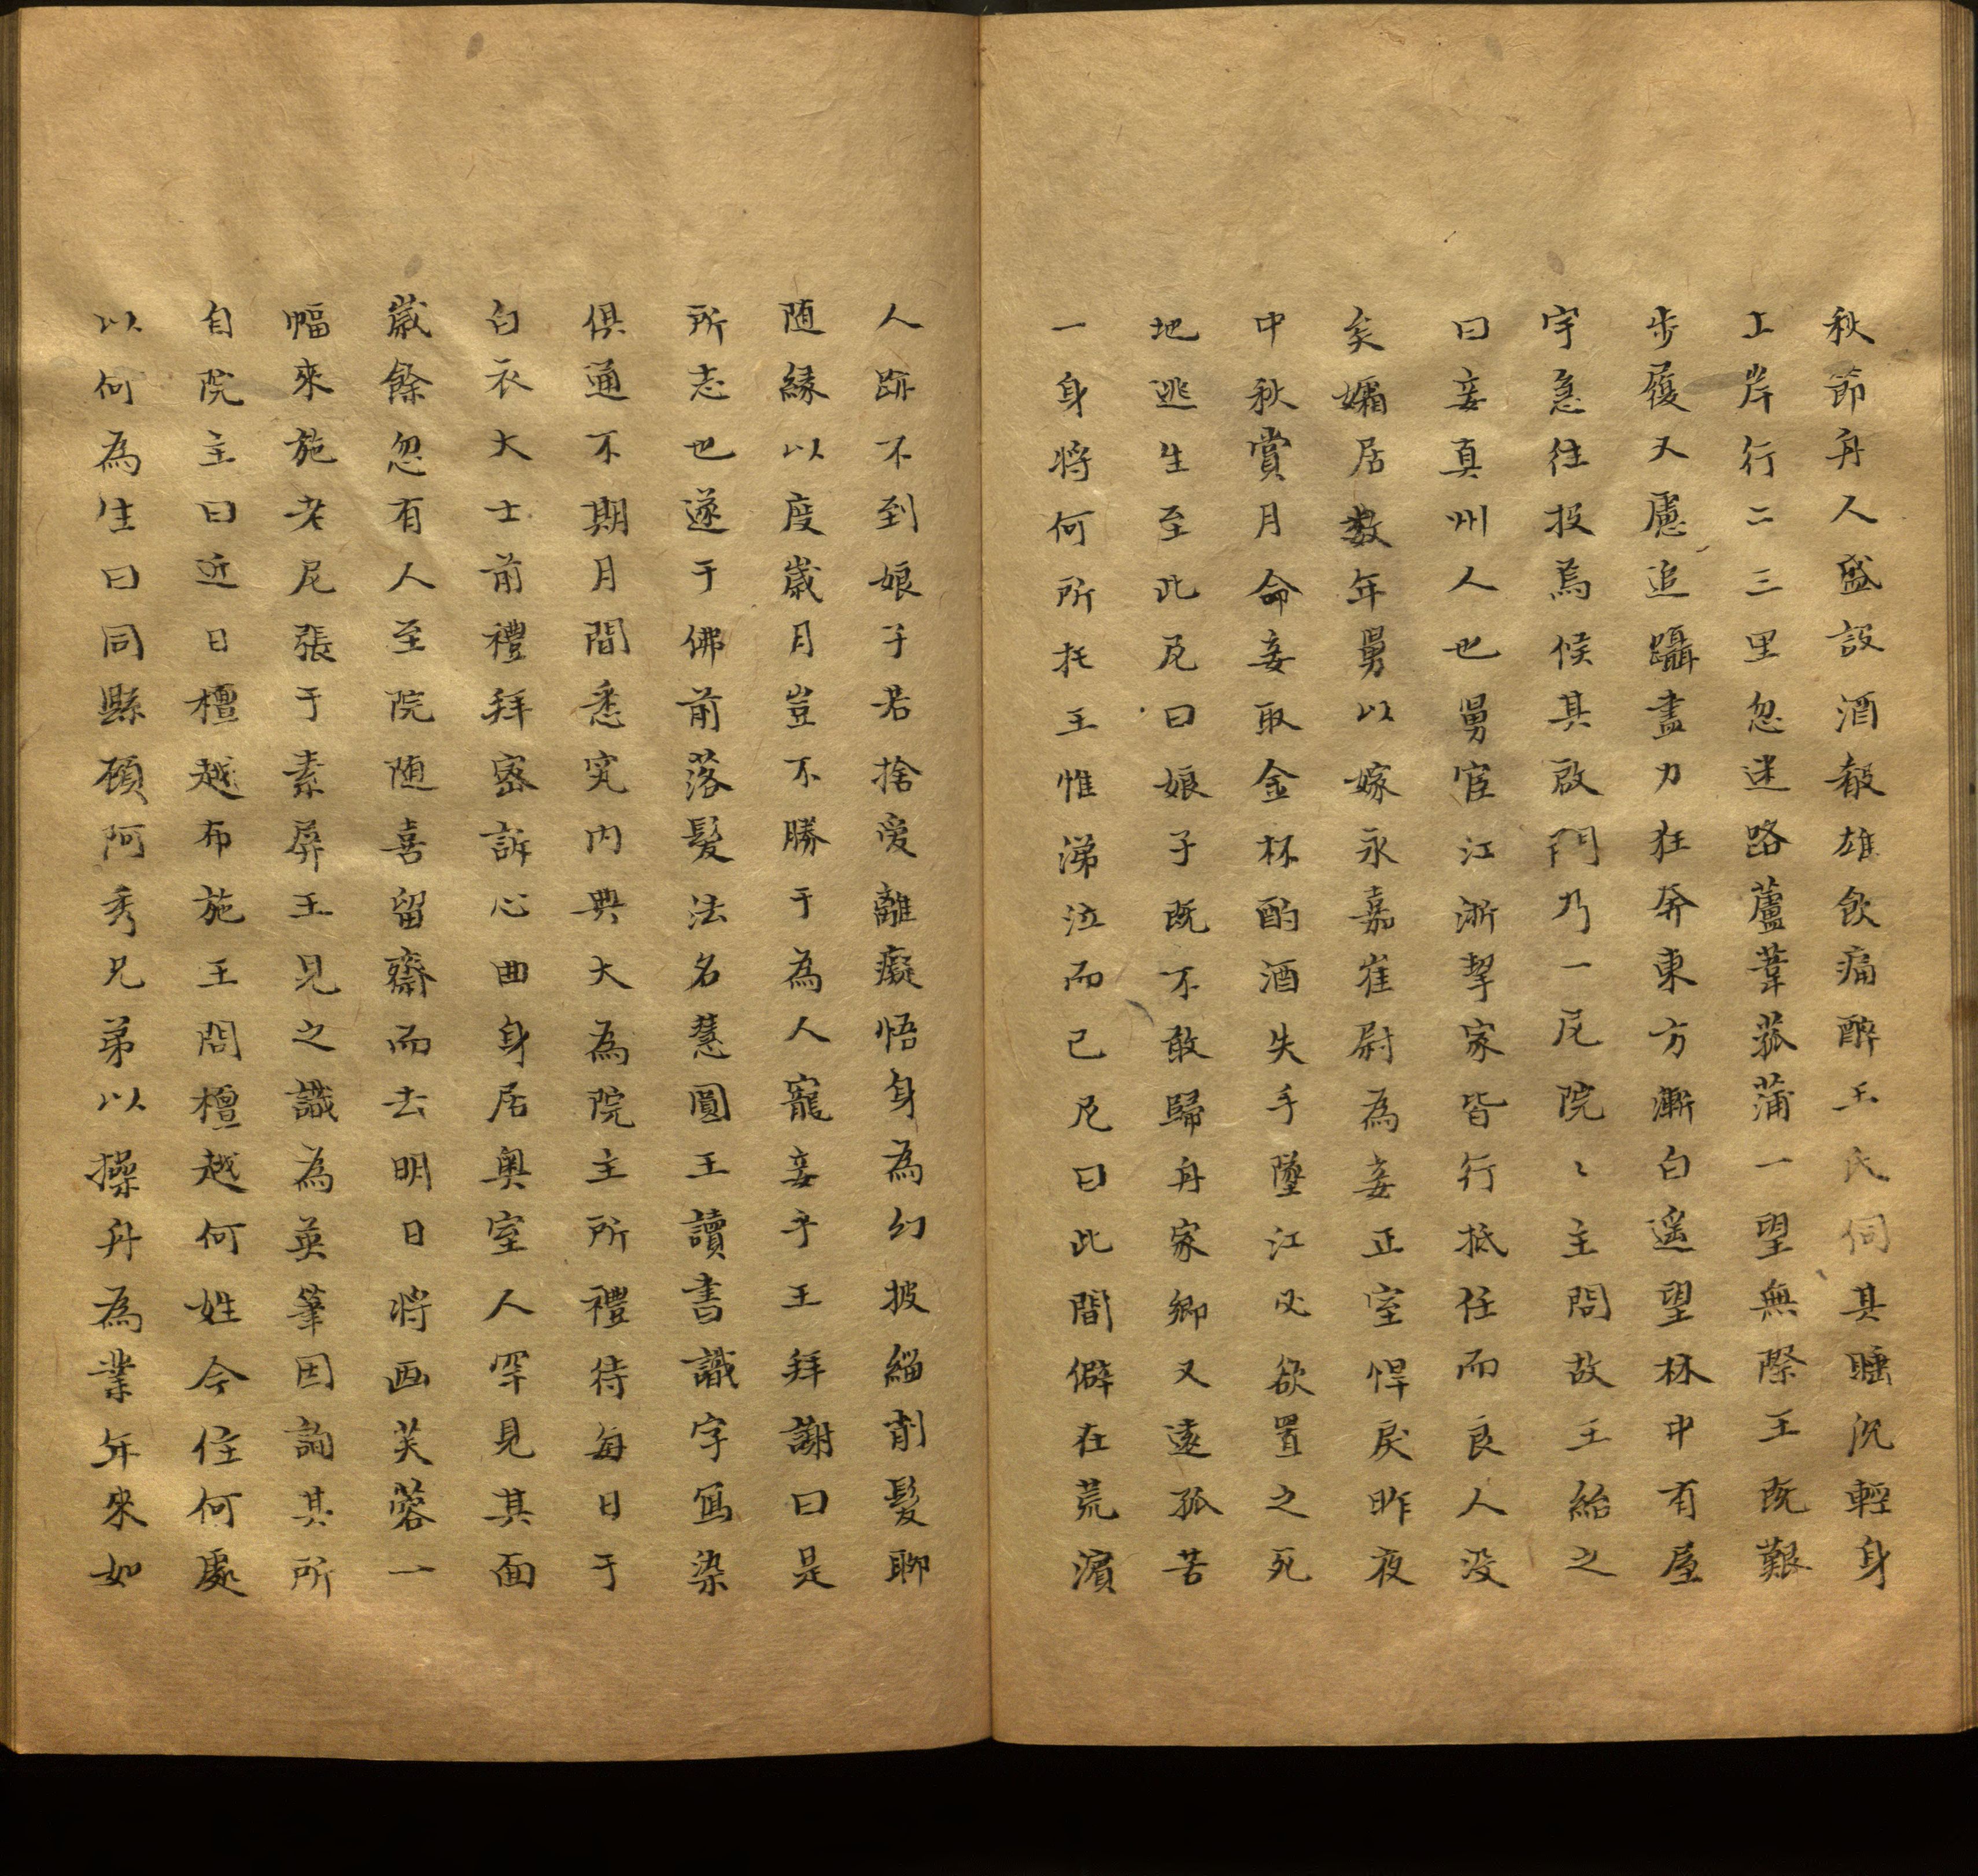 秋節舟人盛設酒殽雄飲痛醉王氏伺其睡沉輕身
上岸行二三里忽迷路蘆葦菰蒲一望無際王既艱
步履又慮追躡盡力狂奔東方漸白遥望林中有屋
宇急往投焉候其啟門乃一尼院〻主問故王紿之
曰妾真州人也舅宦江浙挈家皆行抵任而良人没
矣孀居数年舅以嫁永嘉崔尉為妾正室悍戾昨夜
中秋賞月命妾取金杯酌酒失手墮江必欲置之死
地逃生至此尼曰娘子既不敢歸舟家鄉又遠孤苦
一身将何所托王惟涕泣而已尼曰此間僻在荒濱
人跡不到娘子若捨愛離癡悟身為幻披緇削髮聊
随縁以度歲月豈不勝于為人寵妾乎王拜謝曰是
所志也遂于佛前落髮法名慧圓王讀書識字寫染
俱通不期月間悉究内典大為院主所禮待每日于
白衣大士前禮拜密訴心曲身居奥室人罕見其面
歲餘忽有人至院随喜留齋而去明日将画芙蓉一
幅來施老尼張于素屏王見之識為英筆因詢其所
自院主曰近日檀越布施王問檀越何姓今住何處
以何為生曰同縣顧阿秀兄弟以操舟為業年來如